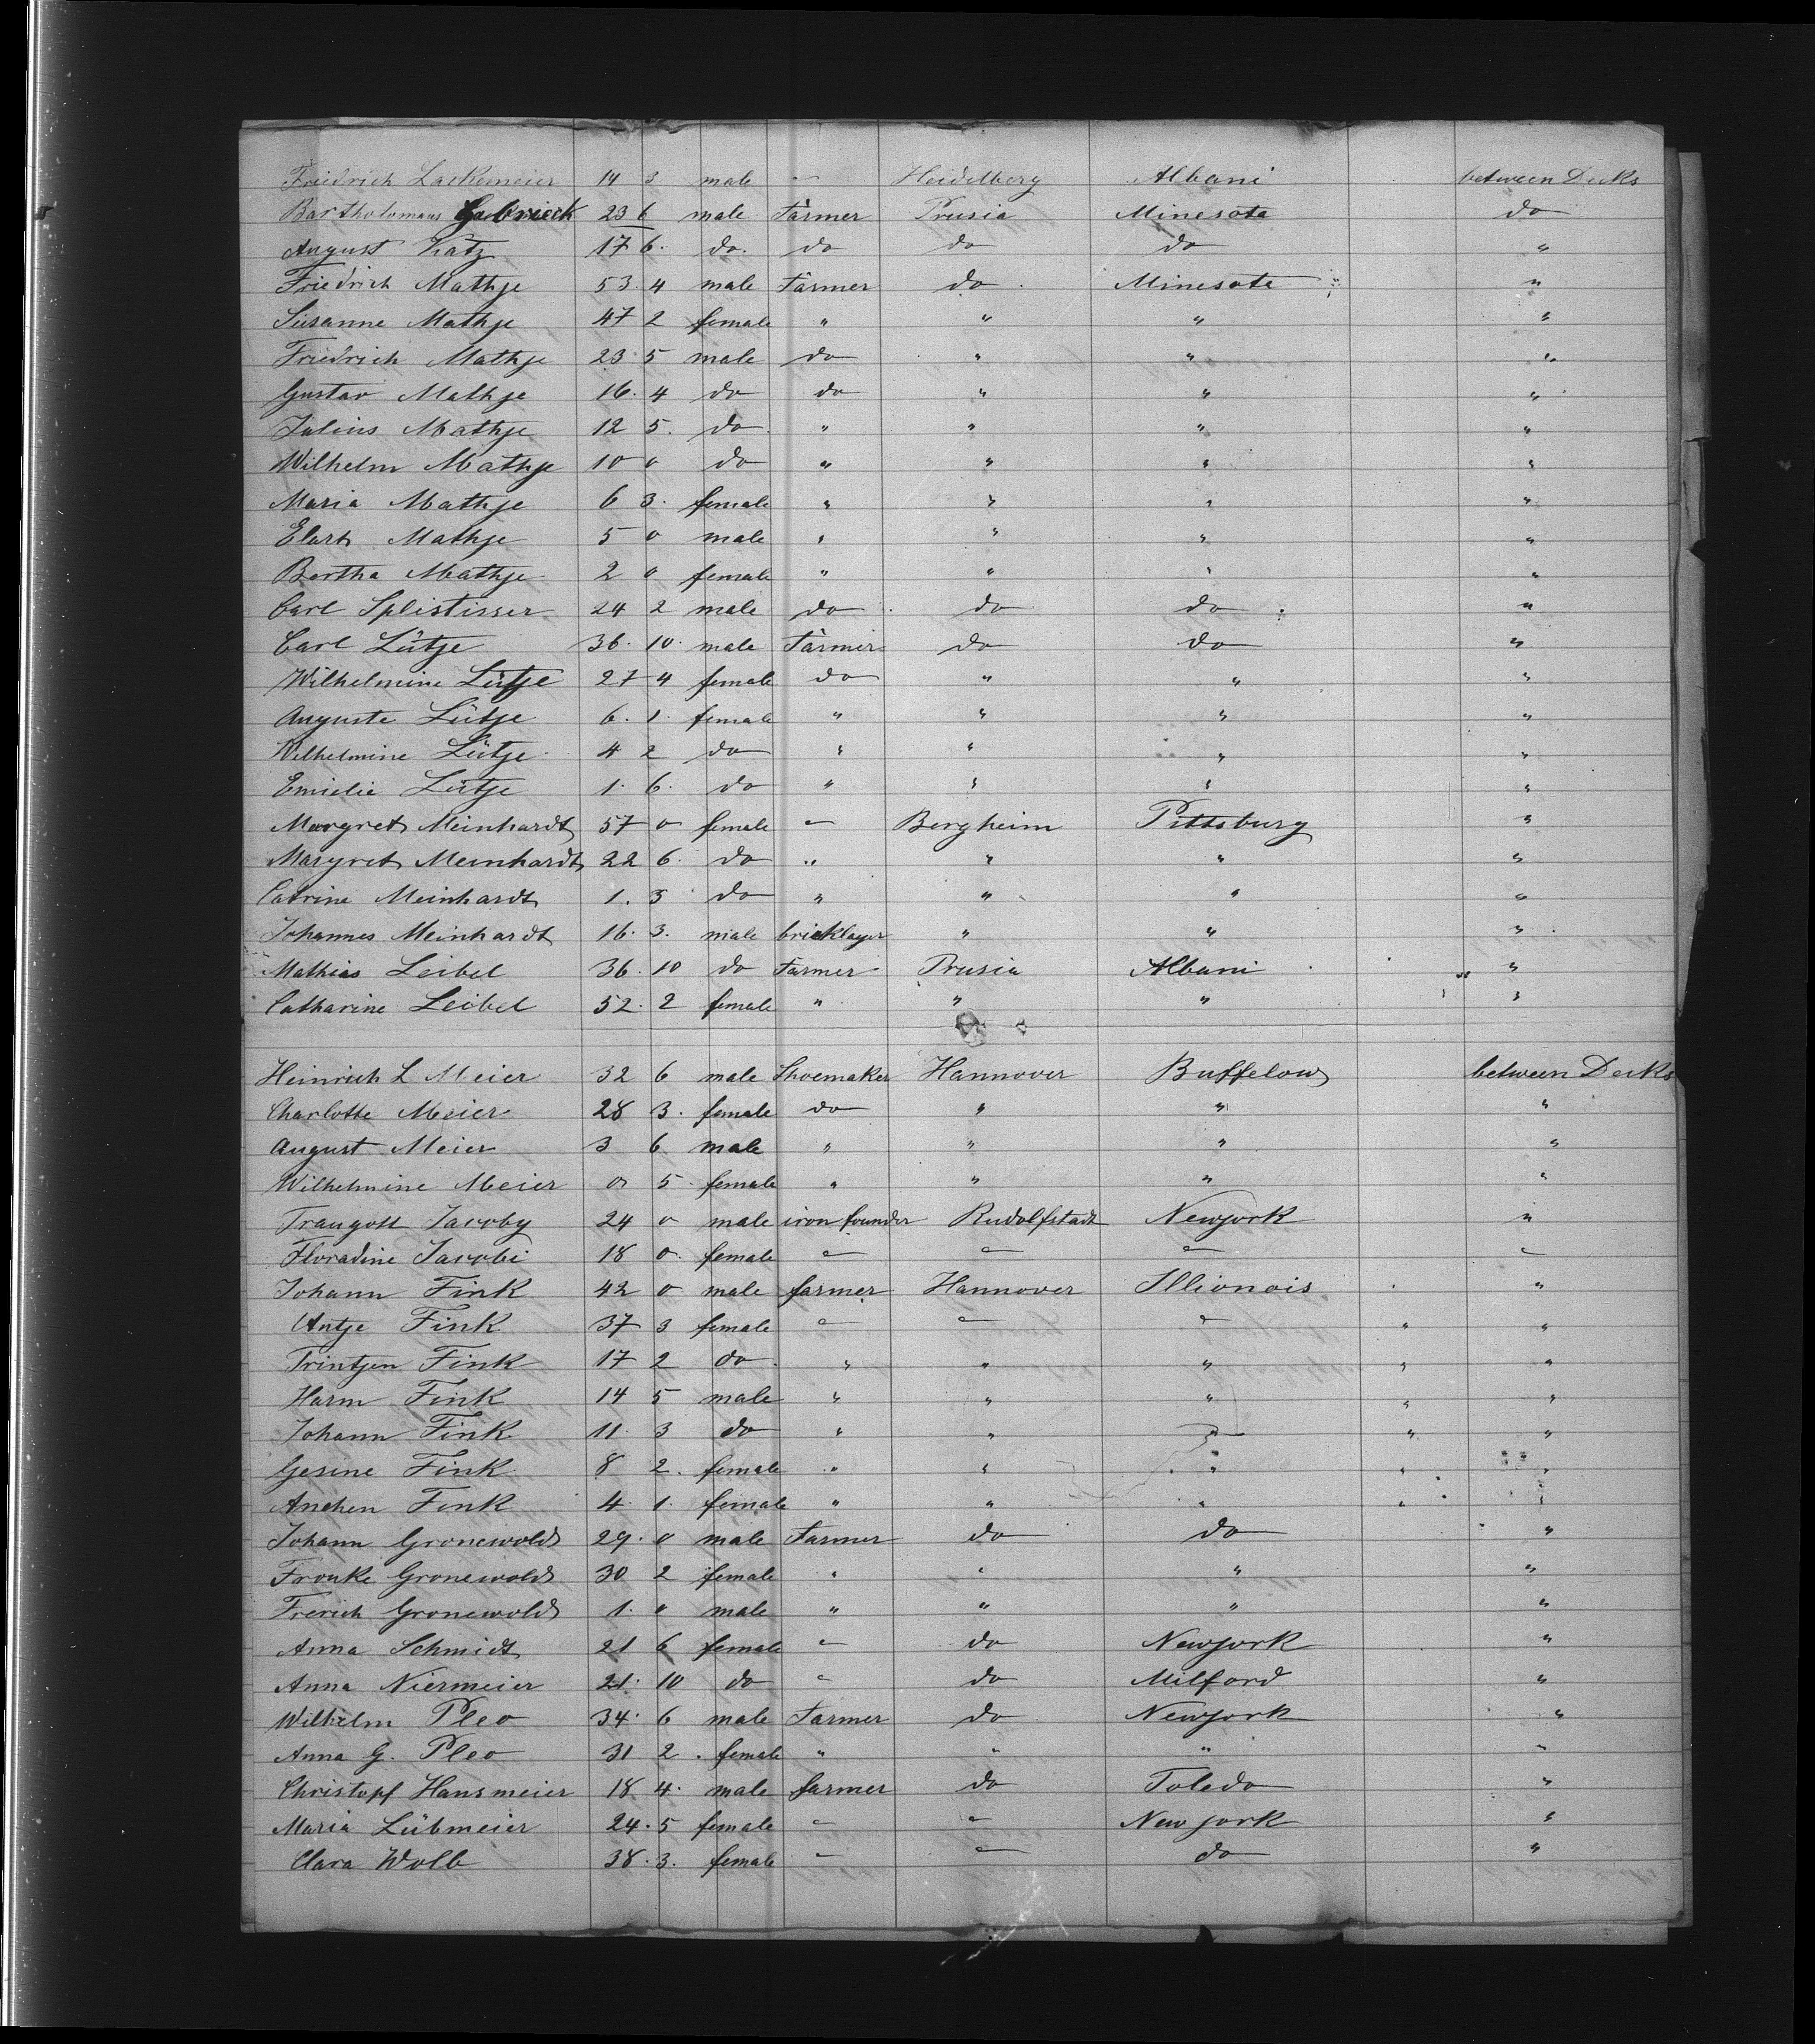 Friedrich Lackemeier 14 3 male " Heidelberg Albani between Decks
Bartholomaus Gabrieck 23 6 male Farmer Prusia Minesota do
August Katz 17 6. do. do do do "
Friedrich Mathje 53. 4 male Farmer do. Minesota "
Susanne Mathje 47 2 female " " " "
Friedrich Mathje 23 5 male do " " "
Gustav Mathje 16. 4 do do " " "
Julius Mathje 12 5. do. " " " "
Wilhelm Mathje 10 0 do " " " "
Maria Mathje 6 3. female " " " "
Elart Mathje 5 0 male " " " "
Bertha Mathje 2 0 female " " " "
Carl Splistisser 24 2 male do do do "
Carl Lütje 36. 10. male Farmer do do "
Wilhelmine Lütje 27 4 female do " " "
Auguste Lütje 6. 1. female " " " "
Wilhelmine Lütje 4 2 do " " " "
Emielie Lütje 1. 6. do " " " "
Margret Meinhardt 57 0 female " Bergheim Pittsburg "
Margret Meinhardt 22 6. do " " " "
Catrine Meinhardt 1. 3 do " " " "
Johannes Meinhardt 16. 3. male bricklayer " " "
Mathias Leibel 36. 10 do Farmer Prusia Albani "
Catharine Leibel 52. 2 female " " " "
Heinrich L Meier 32 6 male Shoemaker Hannover Buffelow between Decks
Charlotte Meier 28 3. female do " " "
August Meier 3 6 male " " " "
Wilhelmine Meier 0 5 female " " " "
Traugott Jacoby 24 0 male iron founder Rudolfstadt Newjork "
Floradine Jacobi 18 0. female " " " "
Johann Fink 42 0 male farmer Hannover Illionois "
Antje Fink 37 3 female " " " " "
Trintjen Fink 17 2 do. " " " " "
Harm Fink 14 5 male " " " " "
Johann Fink 11. 3 do " " " " "
Gesine Fink 8 2. female " " " " "
Anchen Fink 4. 1. female " " " " "
Johann Gronewold 29. 0 male Farmer do do "
Frouke Gronewold 30 2 female " " " "
Frerich Gronewold 1. 0 male " " " "
Anna Schmidt 21 6 female " do Newjork "
Anna Niermeier 21. 10 do " do Milford "
Wilhelm Pleo 34. 6 male Farmer do Newjork "
Anna G. Pleo 31 2. female " " " "
Christopf Hansmeier 18 4. male farmer do Toledo "
Maria Lübmeier 24. 5 female " " New jork "
Clara Wolb 38. 3. female " " do "